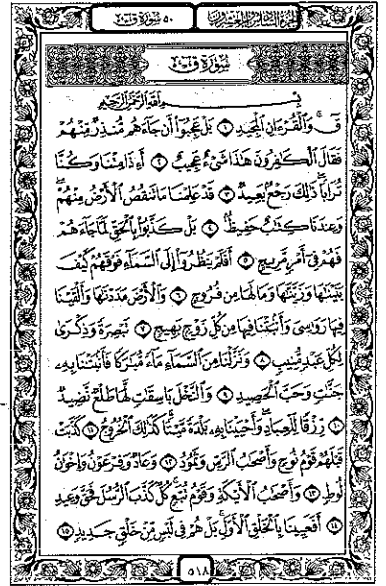 الجزء السادس والعشرون ٥٠ سورة ق
سورة ق
بسم الله الرحمن الرحيم
قٓ ۚ وَٱلْقُرْءَانِ ٱلْمَجِيدِ ١ بَلْ عَجِبُوٓا۟ أَن جَآءَهُم مُّنذِرٌ مِّنْهُمْ
فَقَالَ ٱلْكَٰفِرُونَ هَٰذَا شَىْءٌ عَجِيبٌ ٢ أَءِذَا مِتْنَا وَكُنَّا
تُرَابًا ۖ ذَٰلِكَ رَجْعٌۢ بَعِيدٌ ٣ قَدْ عَلِمْنَا مَا تَنقُصُ ٱلْأَرْضُ مِنْهُمْ ۖ
وَعِندَنَا كِتَٰبٌ حَفِيظٌۢ ٤ بَلْ كَذَّبُوا۟ بِٱلْحَقِّ لَمَّا جَآءَهُمْ
فَهُمْ فِىٓ أَمْرٍ مَّرِيجٍ ٥ أَفَلَمْ يَنظُرُوٓا۟ إِلَى ٱلسَّمَآءِ فَوْقَهُمْ كَيْفَ
بَنَيْنَٰهَا وَزَيَّنَّٰهَا وَمَا لَهَا مِن فُرُوجٍ ٦ وَٱلْأَرْضَ مَدَدْنَٰهَا وَأَلْقَيْنَا
فِيهَا رَوَٰسِىَ وَأَنۢبَتْنَا فِيهَا مِن كُلِّ زَوْجٍۭ بَهِيجٍ ٧ تَبْصِرَةً وَذِكْرَىٰ
لِكُلِّ عَبْدٍ مُّنِيبٍ ٨ وَنَزَّلْنَا مِنَ ٱلسَّمَآءِ مَآءً مُّبَٰرَكًا فَأَنۢبَتْنَا بِهِۦ
جَنَّٰتٍ وَحَبَّ ٱلْحَصِيدِ ٩ وَٱلنَّخْلَ بَاسِقَٰتٍ لَّهَا طَلْعٌ نَّضِيدٌ
١٠ رِّزْقًا لِّلْعِبَادِ ۖ وَأَحْيَيْنَا بِهِۦ بَلْدَةً مَّيْتًا ۚ كَذَٰلِكَ ٱلْخُرُوجُ ١١ كَذَّبَتْ
قَبْلَهُمْ قَوْمُ نُوحٍ وَأَصْحَٰبُ ٱلرَّسِّ وَثَمُودُ ١٢ وَعَادٌ وَفِرْعَوْنُ وَإِخْوَٰنُ
لُوطٍ ١٣ وَأَصْحَٰبُ ٱلْأَيْكَةِ وَقَوْمُ تُبَّعٍ ۚ كُلٌّ كَذَّبَ ٱلرُّسُلَ فَحَقَّ وَعِيدِ
١٤ أَفَعَيِينَا بِٱلْخَلْقِ ٱلْأَوَّلِ ۚ بَلْ هُمْ فِى لَبْسٍ مِّنْ خَلْقٍ جَدِيدٍ ١٥
٥١٨